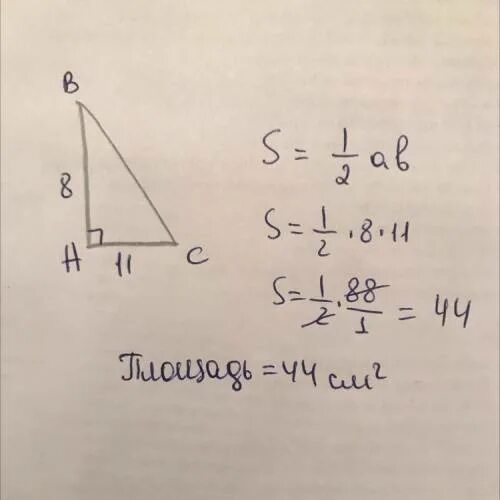 B
8
H
11
C
S = 1/2 ab
S = 1/2 · 8 · 11
S = 1/2 · 88/1 = 44
Площадь = 44 см²